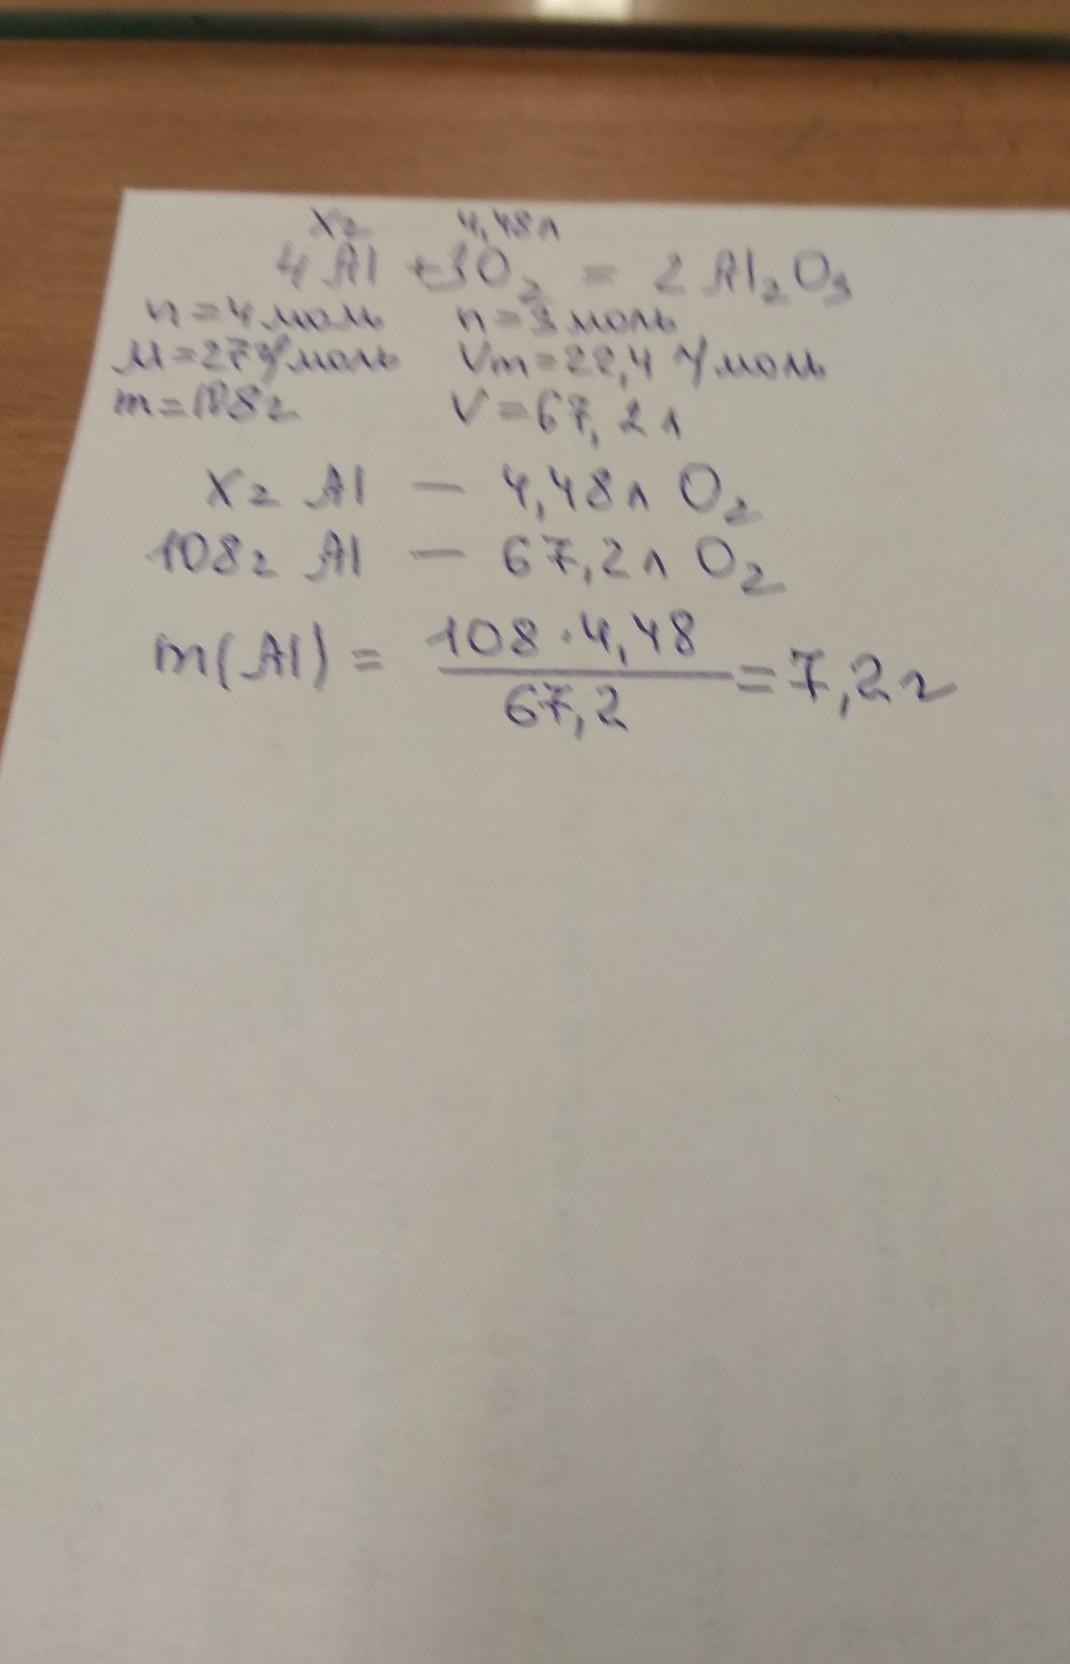 хг 4,48л
4Al + 3O₂ = 2Al₂O₃
n=4моль n=3моль
M=27г/моль Vm=22,4 л/моль
m=108г V=67,2л
хг Al — 4,48л O₂
108г Al — 67,2л O₂
m(Al) = 108·4,48/67,2 = 7,2г